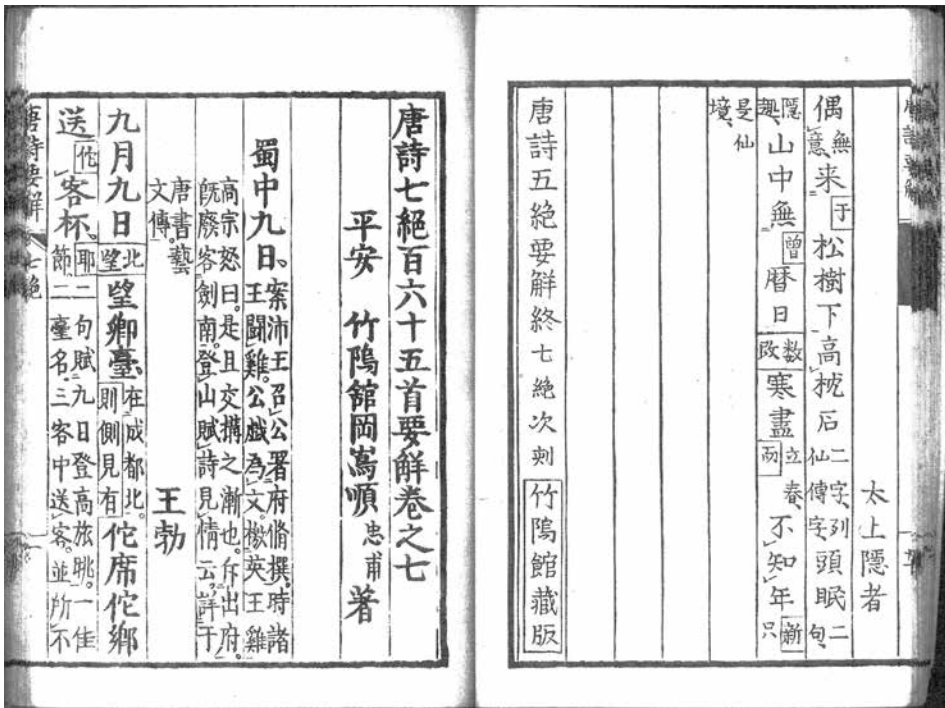 太上隱者
偶無意来于松樹下高枕石二字、列仙傳字、頭眠二句、
隱趣、山中無曾暦日数改寒盡立春、而不知年漸只
是仙境、
唐詩五絕要解終七絕次刻竹隝館藏版
唐詩七絕百六十五首要解卷之七
平安 竹隝舘岡嶌順忠甫著
蜀中九日、案沛王召公署府脩撰。時諸王鬪雞。公戯為文。檄英王雞
高宗怒曰。是且交搆之漸也。斥出府。既廢客劍南。登山賦詩見情云。詳于
唐書藝文傳。
王勃
九月九日北望望鄉臺在成都北。則側見有佗席佗鄉
送佗客杯、耶二句賦九日登高旅眺。一佳節二臺名。三客中送客。並所不
唐詩要解 七絕